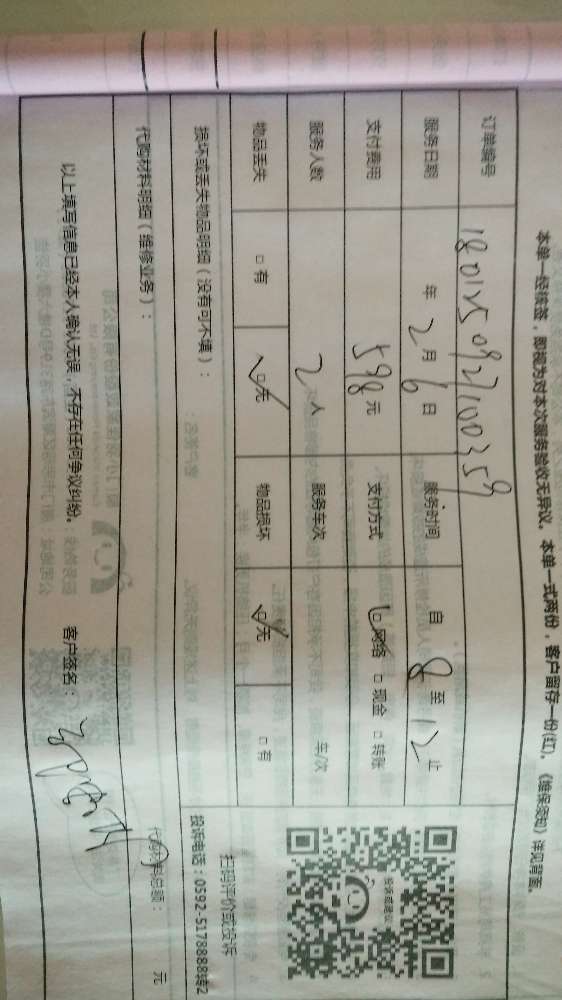 本单一经核签，即视为对本次服务验收无异议。本单一式两份，客户留存一份(红)。《维保须知》详见背面。
订单编号 1801250927100359
服务日期 年 2 月 6 日 服务时间 自 8 至 12 止
支付费用 598 元 支付方式 ☑网络 □现金 □转账
服务人数 2 人 服务车次 车/次
物品丢失 □有 ☑无 物品损坏 ☑无 □有
损坏或丢失物品明细（没有可不填）：
投诉或建议
扫码评价或投诉
投诉电话：0592-5178888转2
代购材料明细（维修业务）：
代购材料总额： 元
以上填写信息已经本人确认无误，不存在任何争议纠纷。
客户签名：